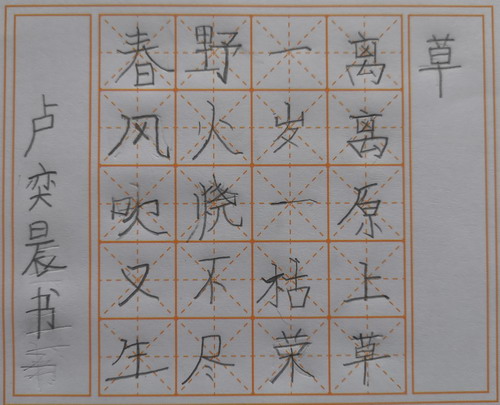 草
离离原上草
一岁一枯荣
野火烧不尽
春风吹又生
卢奕晨书